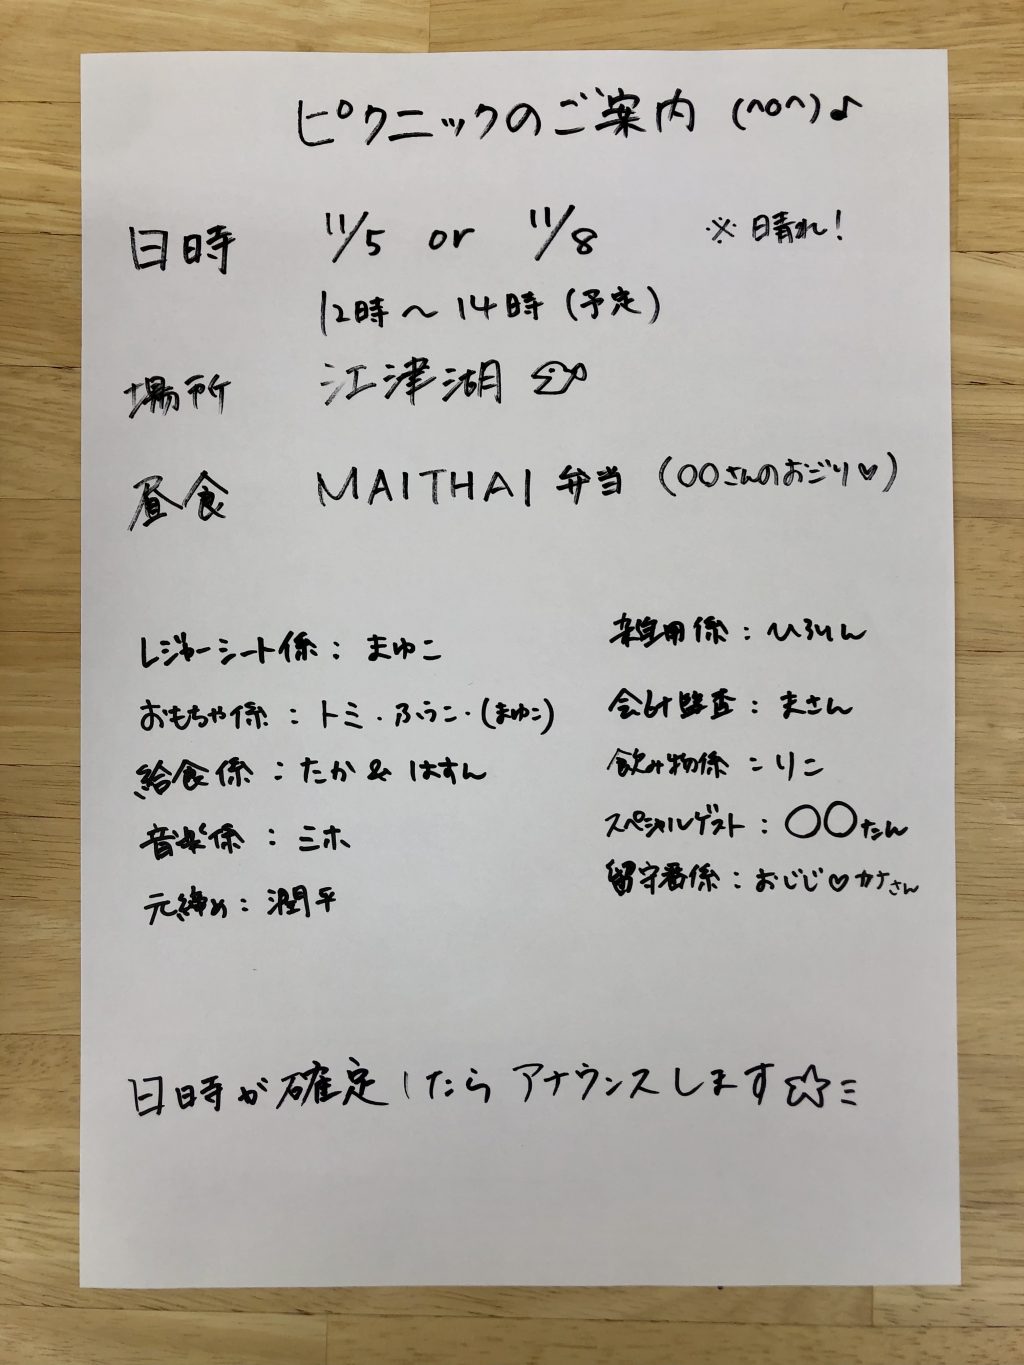 ピクニックのご案内 (^o^)♪
日時 11/5 or 11/8 ※日晴れ!
12時〜14時(予定)
場所 江津湖
昼食 MAITHAI弁当 (○○さんのおごり♡)
レジャーシート係：まゆこ
おもちゃ係：トミ・ふうこ・(まゆこ)
給食係：たか & はすん
音楽係：ミホ
元締め：潤平
雑用係：ひろりん
会計監査：まさん
飲み物係：りこ
スペシャルゲスト：○○たん
留守番係：おじじ♡カナさん
日時が確定したらアナウンスします☆ミ